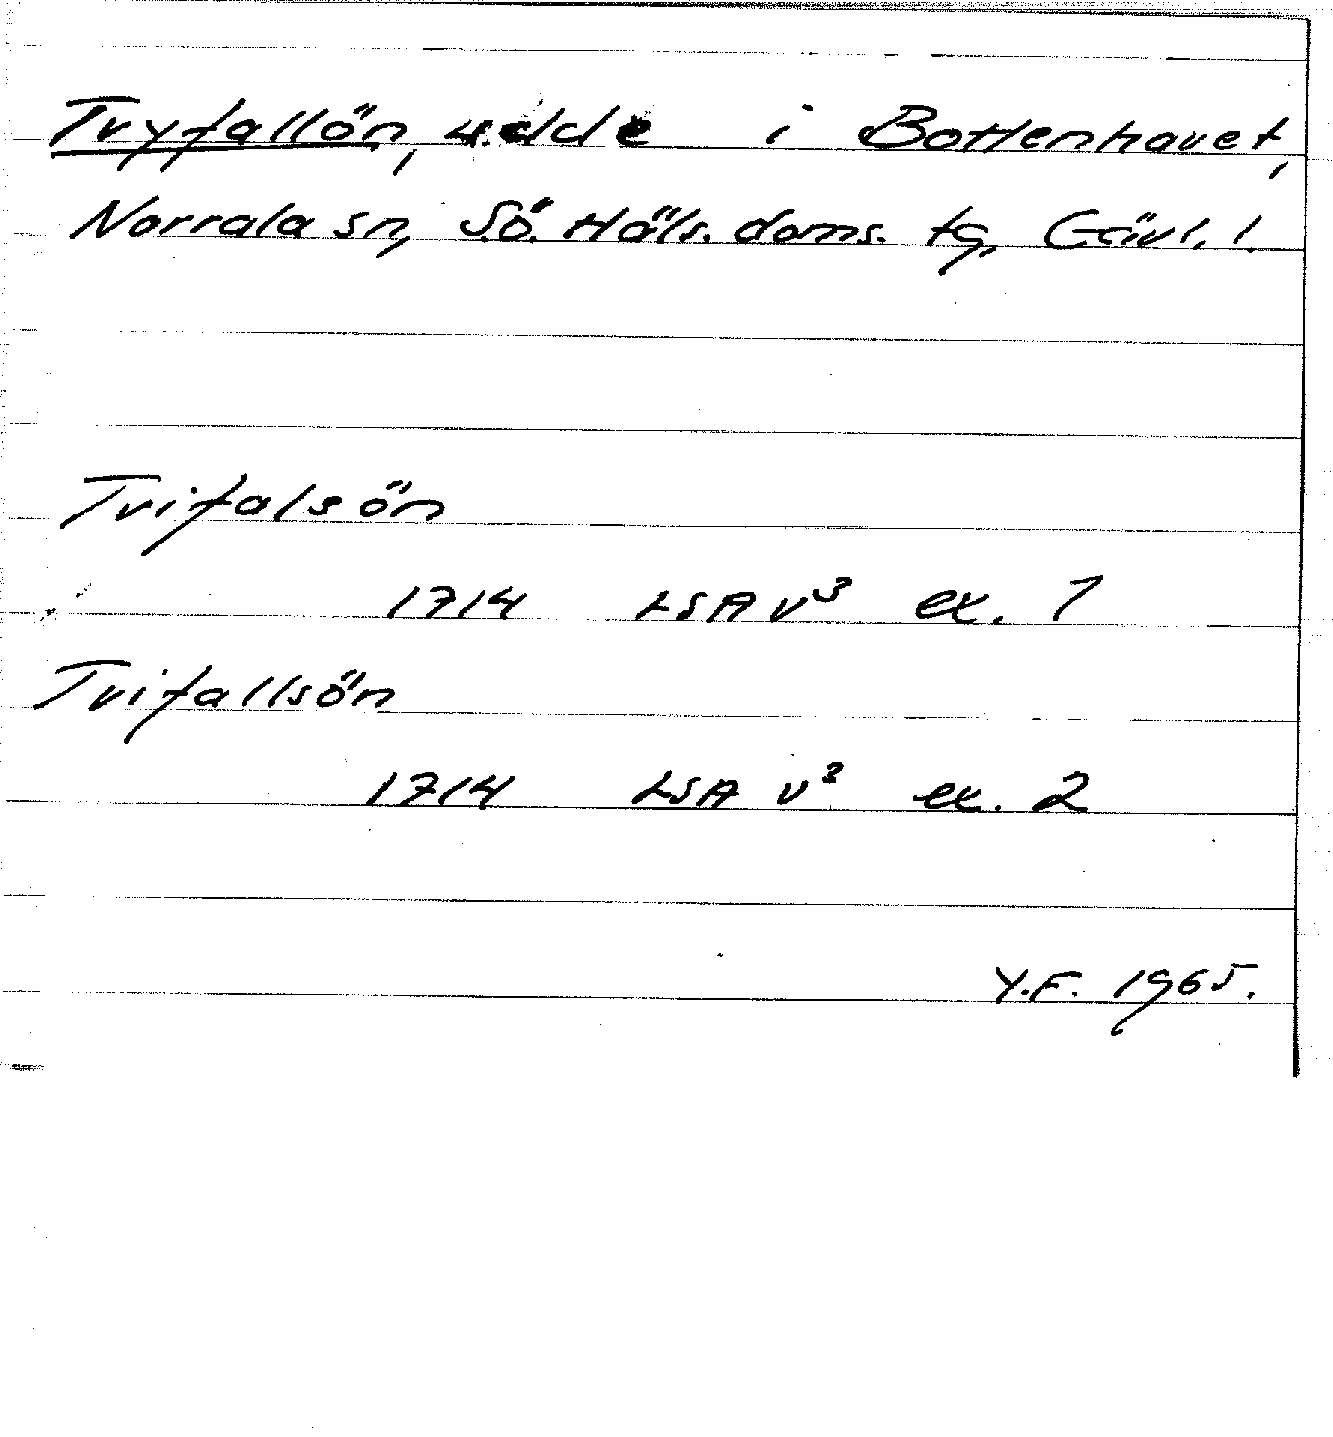 Tryfallön, udde i Bottenhavet,
Norrala sn, Sö. Häls. doms. tg, Gävl. l.
Trifalsön
1714 LSA V³ ex. 1
Trifallsön
1714 LSA V³ ex. 2
Y.F. 1965.